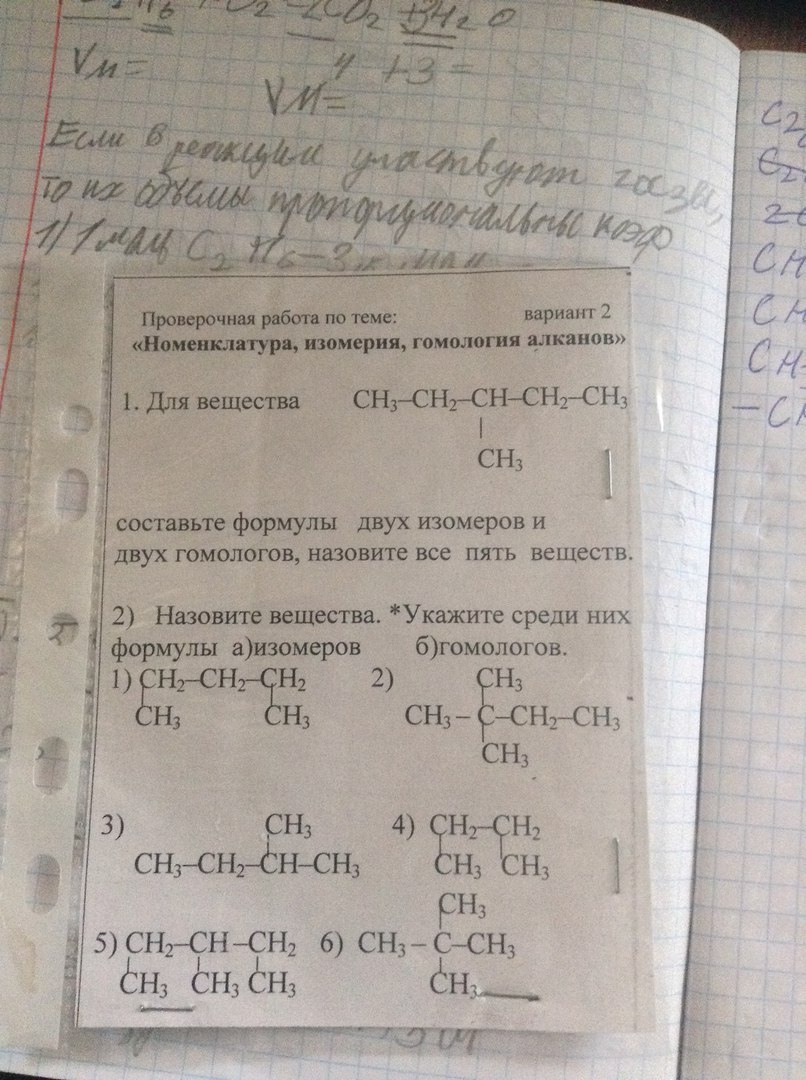 Vм =
4 +3 =
VM=
Если в реакции участвуют газы,
то их объемы пропорциональны коэф
1) 1 мац C₂H₆ – 3
Проверочная работа по теме: вариант 2
«Номенклатура, изомерия, гомология алканов»
1. Для вещества CH₃–CH₂–CH–CH₂–CH₃
|
CH₃
составьте формулы двух изомеров и
двух гомологов, назовите все пять веществ.
2) Назовите вещества. *Укажите среди них
формулы а)изомеров б)гомологов.
1) CH₂–CH₂–CH₂ 2) CH₃
CH₃ CH₃ CH₃ – C–CH₂–CH₃
CH₃
3) CH₃ 4) CH₂–CH₂
CH₃–CH₂–CH–CH₃ CH₃ CH₃
CH₃
5) CH₂–CH –CH₂ 6) CH₃ – C–CH₃
CH₃ CH₃ CH₃ CH₃